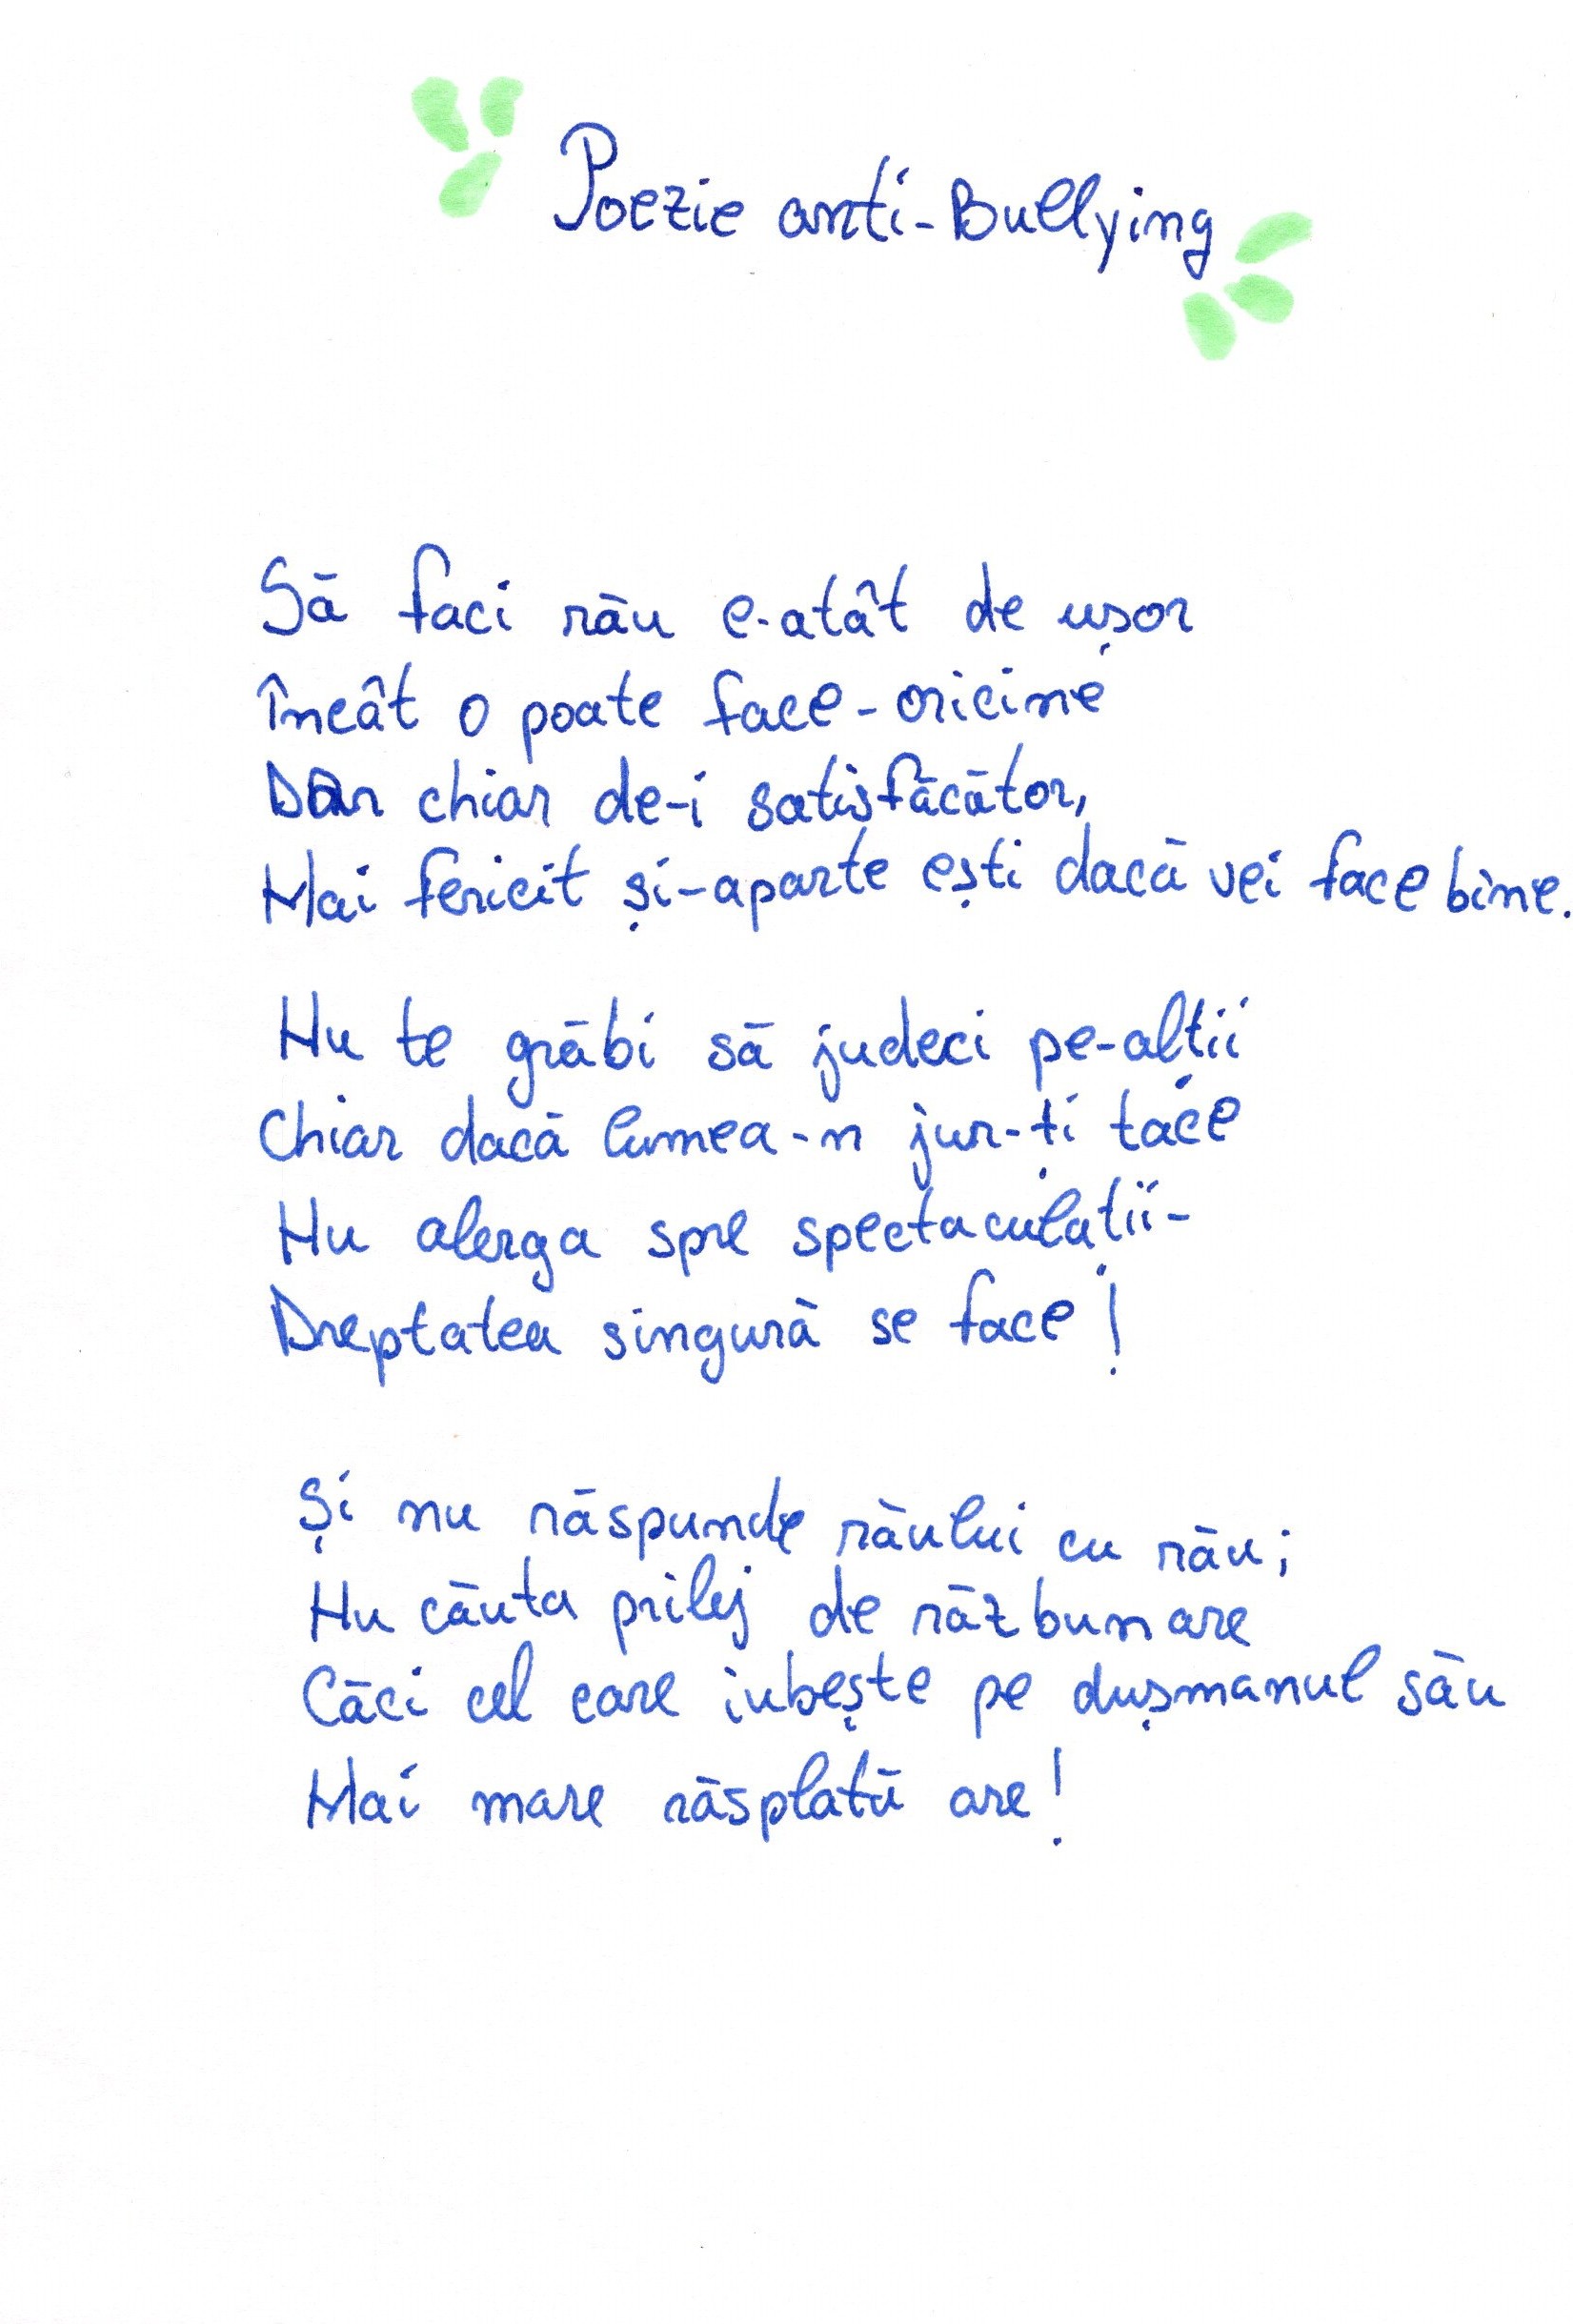 Poezie anti-Bullying
Să faci rău e-atât de ușor
Încât o poate face-oricine
Dar chiar de-i satisfăcător,
Mai fericit și-aparte ești dacă vei face bine.
Nu te grăbi să judeci pe-alții
Chiar dacă lumea-n jur-ți tace
Nu alerga spre spectaculații-
Dreptatea singură se face!
Și nu răspunde răului cu rău;
Nu căuta prilej de răzbunare
Căci cel care iubește pe dușmanul său
Mai mare răsplată are!